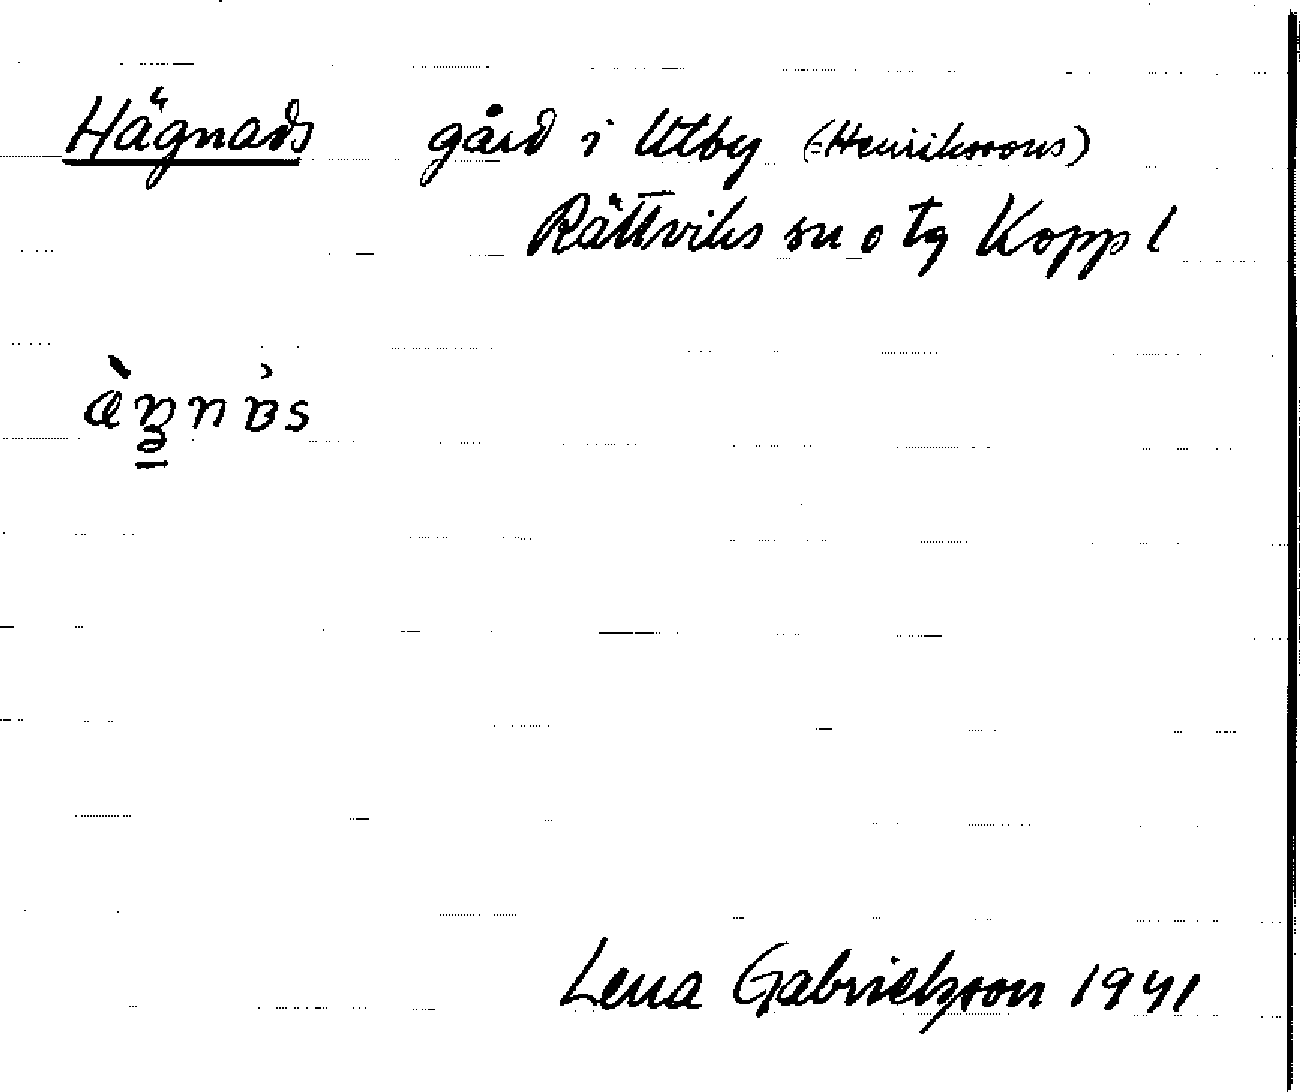 Hägnads gård i Utby (=Henrikssons)
Rättviks sn o tg Kopp l
Lena Gabrielsson 1941